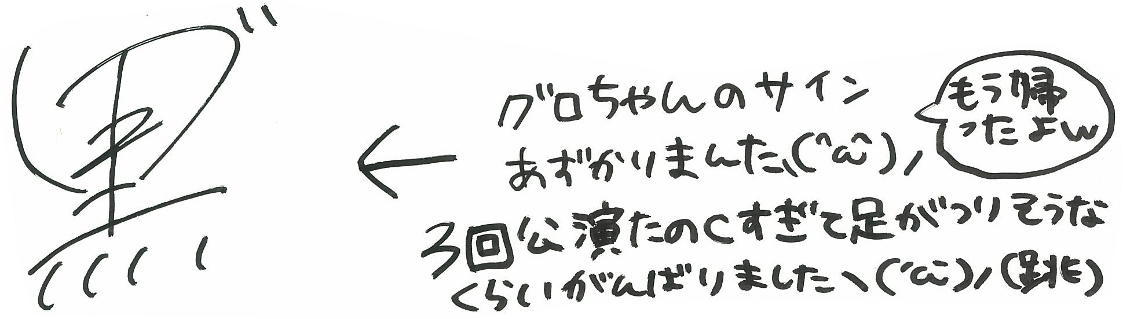 黒"
グロちゃんのサイン
あずかりました、(^ω^)ノ
もう帰
ったよw
3回公演たのしすぎて足がつりそうな
くらいがんばりましたヽ(^ω^)ノ(跳)